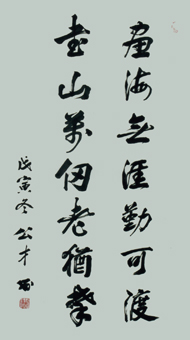 畫海無涯勤可渡
書山萬仞老猶攀
戊寅冬公才